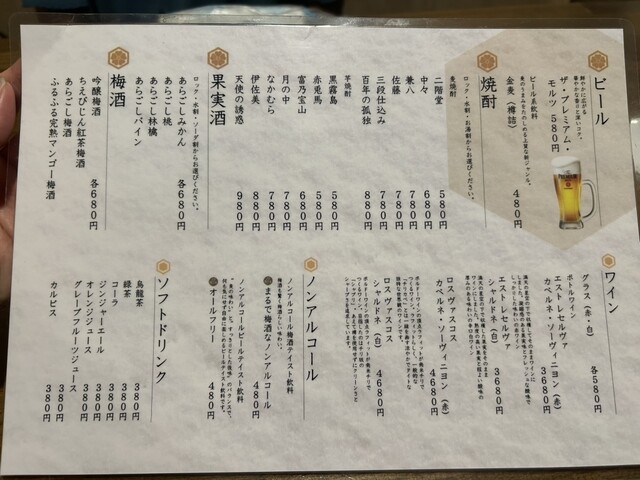 ビール
鮮やかに広がる
華やかな香りと深いコク。
ザ・プレミアム・
モルツ 580円
ビール系飲料
麦のうまみをたのしめる上質な新ジャンル。
金麦（樽詰） 480円
焼酎
ロック・水割・お湯割からお選びください。
麦焼酎
二階堂 580円
中々 680円
兼八 780円
佐藤 780円
三段仕込み 780円
百年の孤独 880円
芋焼酎
黒霧島 580円
赤兎馬 580円
富乃宝山 680円
月の中 780円
なかむら 780円
伊佐美 880円
天使の誘惑 980円
果実酒
ロック・水割・ソーダ割からお選びください。
あらごしみかん 各680円
あらごし桃
あらごし林檎
あらごしパイン
梅酒
吟醸梅酒 各680円
ちえびじん紅茶梅酒
あらごし梅酒
ふるふる完熟マンゴー梅酒
ワイン
グラス（赤・白） 各580円
ボトルワイン
エスト レセルヴァ
カベルネ・ソーヴィニヨン（赤） 3680円
エスト レセルヴァ
シャルドネ（白） 3680円
ロス ヴァスコス
カベルネ・ソーヴィニヨン（赤） 4680円
ロス ヴァスコス
シャルドネ（白） 4680円
ノンアルコール
ノンアルコール梅酒テイスト飲料
まるで梅酒なノンアルコール 480円
ノンアルコールビールテイスト飲料
オールフリー 480円
ソフトドリンク
烏龍茶 380円
緑茶 380円
コーラ 380円
ジンジャーエール 380円
オレンジジュース 380円
グレープフルーツジュース 380円
カルピス 380円